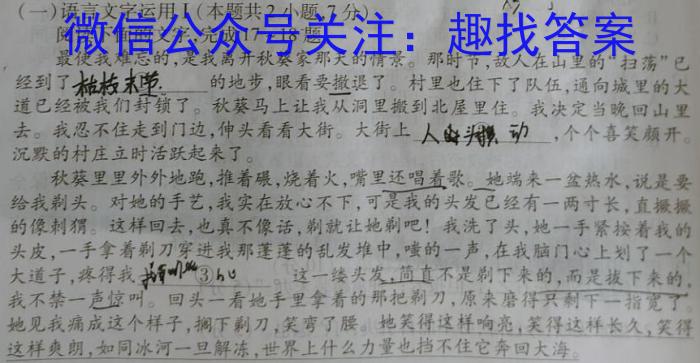 (一)语言文字运用Ⅰ(本题共2小题,7分)
微信公众号关注:趣找答案
阅读下面的文字,完成17~18题。
最使我难忘的,是我离开秋葵家那天的情景。那时节,敌人在山里的“扫荡”已
经到了 枯枝末节 的地步,眼看要撤退了。村里也住下了队伍,通向城里的大
道已经被我们封锁了。秋葵马上让我从洞里搬到北屋里住。我决定当晚回山里
去。我忍不住走到门边,伸头看看大街。大街上 人头 动 ,个个喜笑颜开。
沉默的村庄立时活跃起来了。
秋葵里里外外地跑,推着碾,烧着火,嘴里还唱着歌。她端来一盆热水,说是要
给我剃头。对她的手艺,我实在放心不下,可是我的头发已经有一两寸长,直撅撅
的像刺猬。这样回去,也真不像话,剃就让她剃吧!我洗了头,她一手紧按着我的
头皮,一手拿着剃刀穿进我那蓬蓬的乱发堆中,嗤的一声,在我脑门心上划了一个
大道子,疼得我 ③ 这一缕头发,简直不是剃下来的,而是拔下来的,
我不禁一声惊叫。回头一看她手里拿着的那把剃刀,原来磨得只剩下一指宽了。
她见我痛成这个样子,搁下剃刀,笑弯了腰。她笑得这样响亮,笑得这样长久,笑得
这样爽朗,如同冰河一旦解冻,世界上什么力量也挡不住它奔回大海。